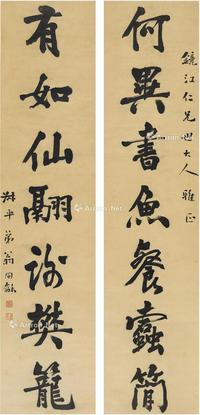 鏡江仁兄世大人雅正
何異書魚餐蠹簡
有如仙翮謝樊籠
叔平弟翁同龢